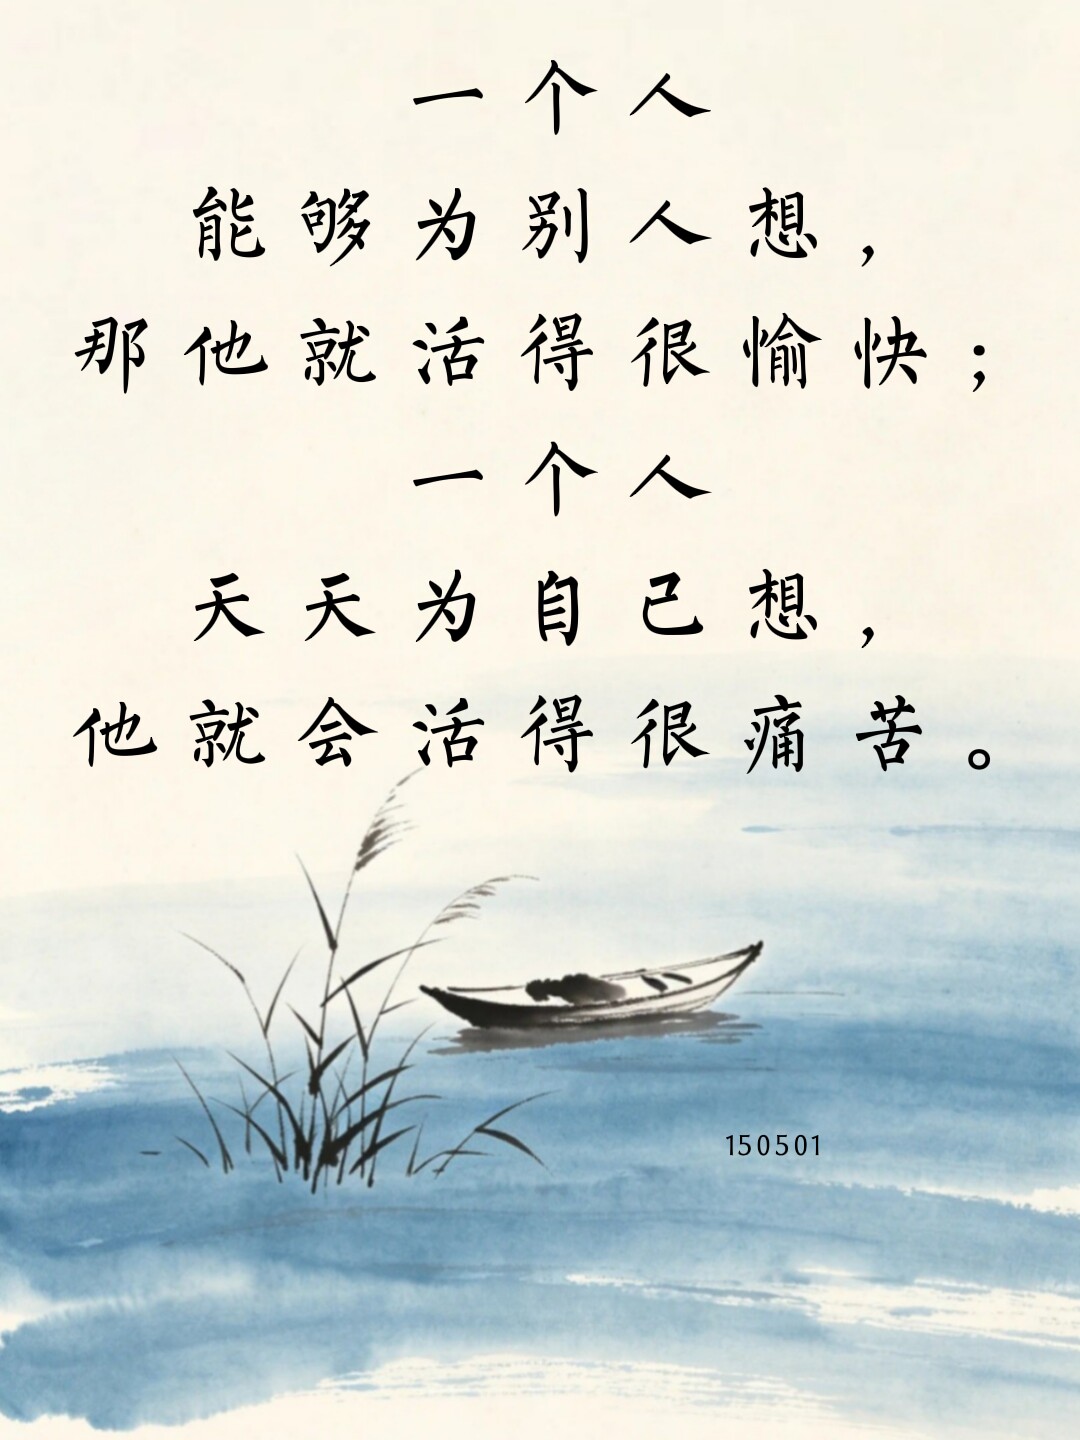 一个人
能够为别人想，
那他就活得很愉快；
一个人
天天为自己想，
他就会活得很痛苦。
150501